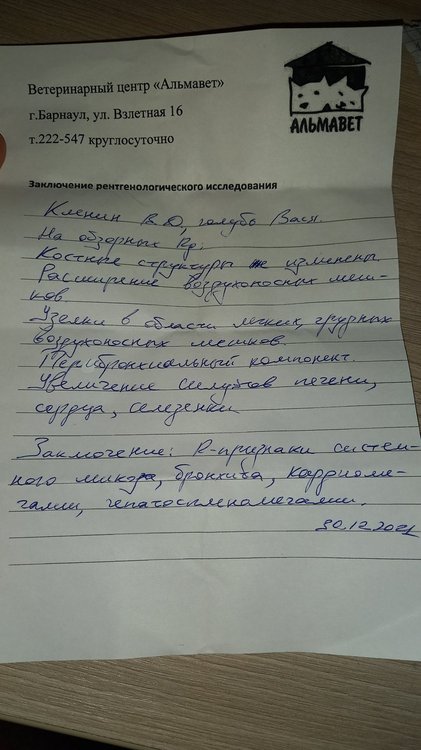 Ветеринарный центр «Альмавет»
г.Барнаул, ул. Взлетная 16
т.222-547 круглосуточно
АЛЬМАВЕТ
Заключение рентгенологического исследования
Кленин В Ю, голубь Вася.
На обзорных Rg:
Костные структуры не изменены.
Расширение воздухоносных меш-
ков.
Узелки в области легких, грудных
воздухоносных мешков.
Перибронхиальный компонент.
Увеличение силуэтов печени,
сердца, селезенки.
Заключение: R-признаки систем-
ного микоза, бронхита, кардиоме-
галии, гепатоспленомегалии.
30.12.2021